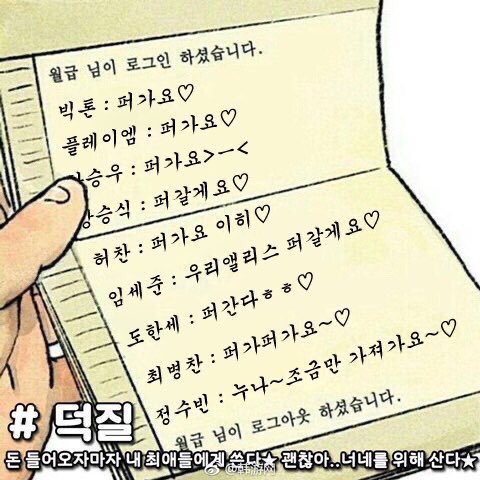 월급 님이 로그인 하셨습니다.
빅톤 : 퍼가요♡
플레이엠 : 퍼가요♡
승우 : 퍼가요>ㅡ<
강승식 : 퍼갈게요♡
허찬 : 퍼가요 이히♡
임세준 : 우리앨리스 퍼갈게요♡
도한세 : 퍼간다ㅎㅎ♡
최병찬 : 퍼가퍼가요~♡
정수빈 : 누나~조금만 가져가요~♡
월급 님이 로그아웃 하셨습니다.
# 덕질
돈 들어오자마자 내 최애들에게 쓴다★ 괜찮아..너네를 위해 산다★
@韩游网